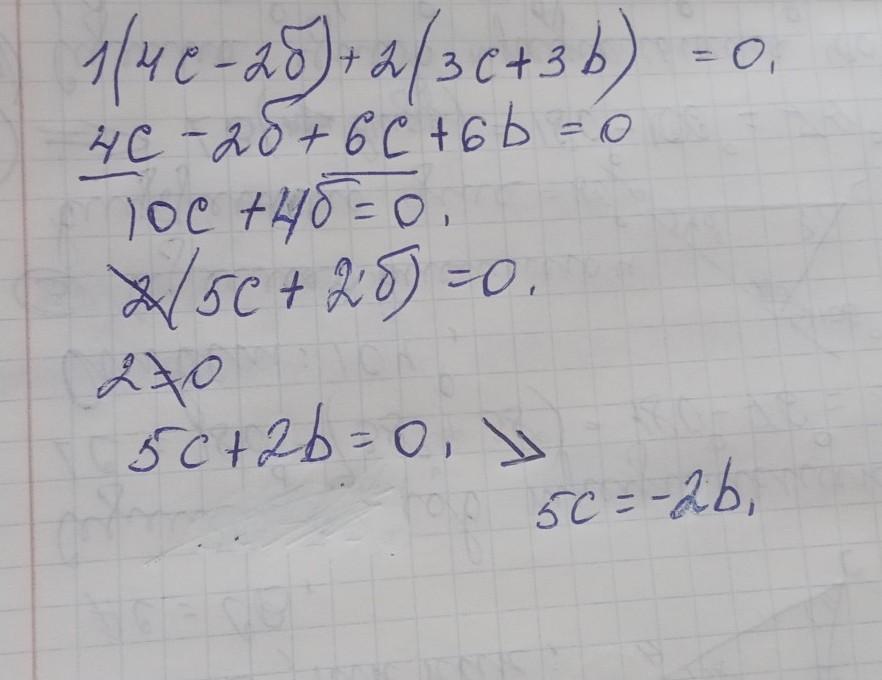 1(4c-2б)+2(3c+3b) =0,
4c-2б+6c+6b=0
10c+4б=0,
2(5c+2б)=0.
2≠0
5c+2b=0, ⇒
5c=-2b,